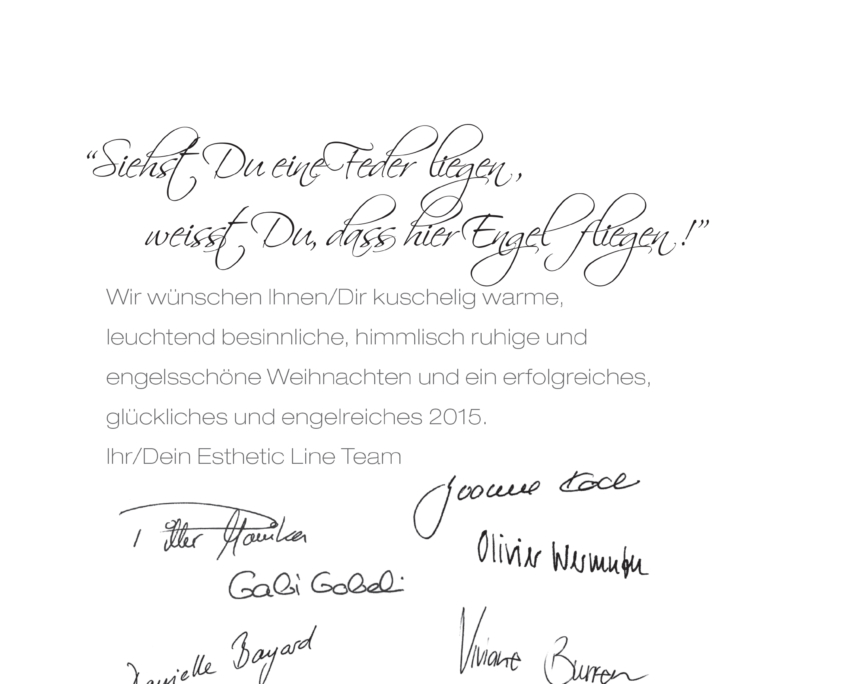 “Siehst Du eine Feder liegen,
weisst Du, dass hier Engel fliegen!”
Wir wünschen Ihnen/Dir kuschelig warme,
leuchtend besinnliche, himmlisch ruhige und
engelsschöne Weihnachten und ein erfolgreiches,
glückliches und engelreiches 2015.
Ihr/Dein Esthetic Line Team
Olivier
Gabi Gobeli
Danielle Bayard
Viviane Burren